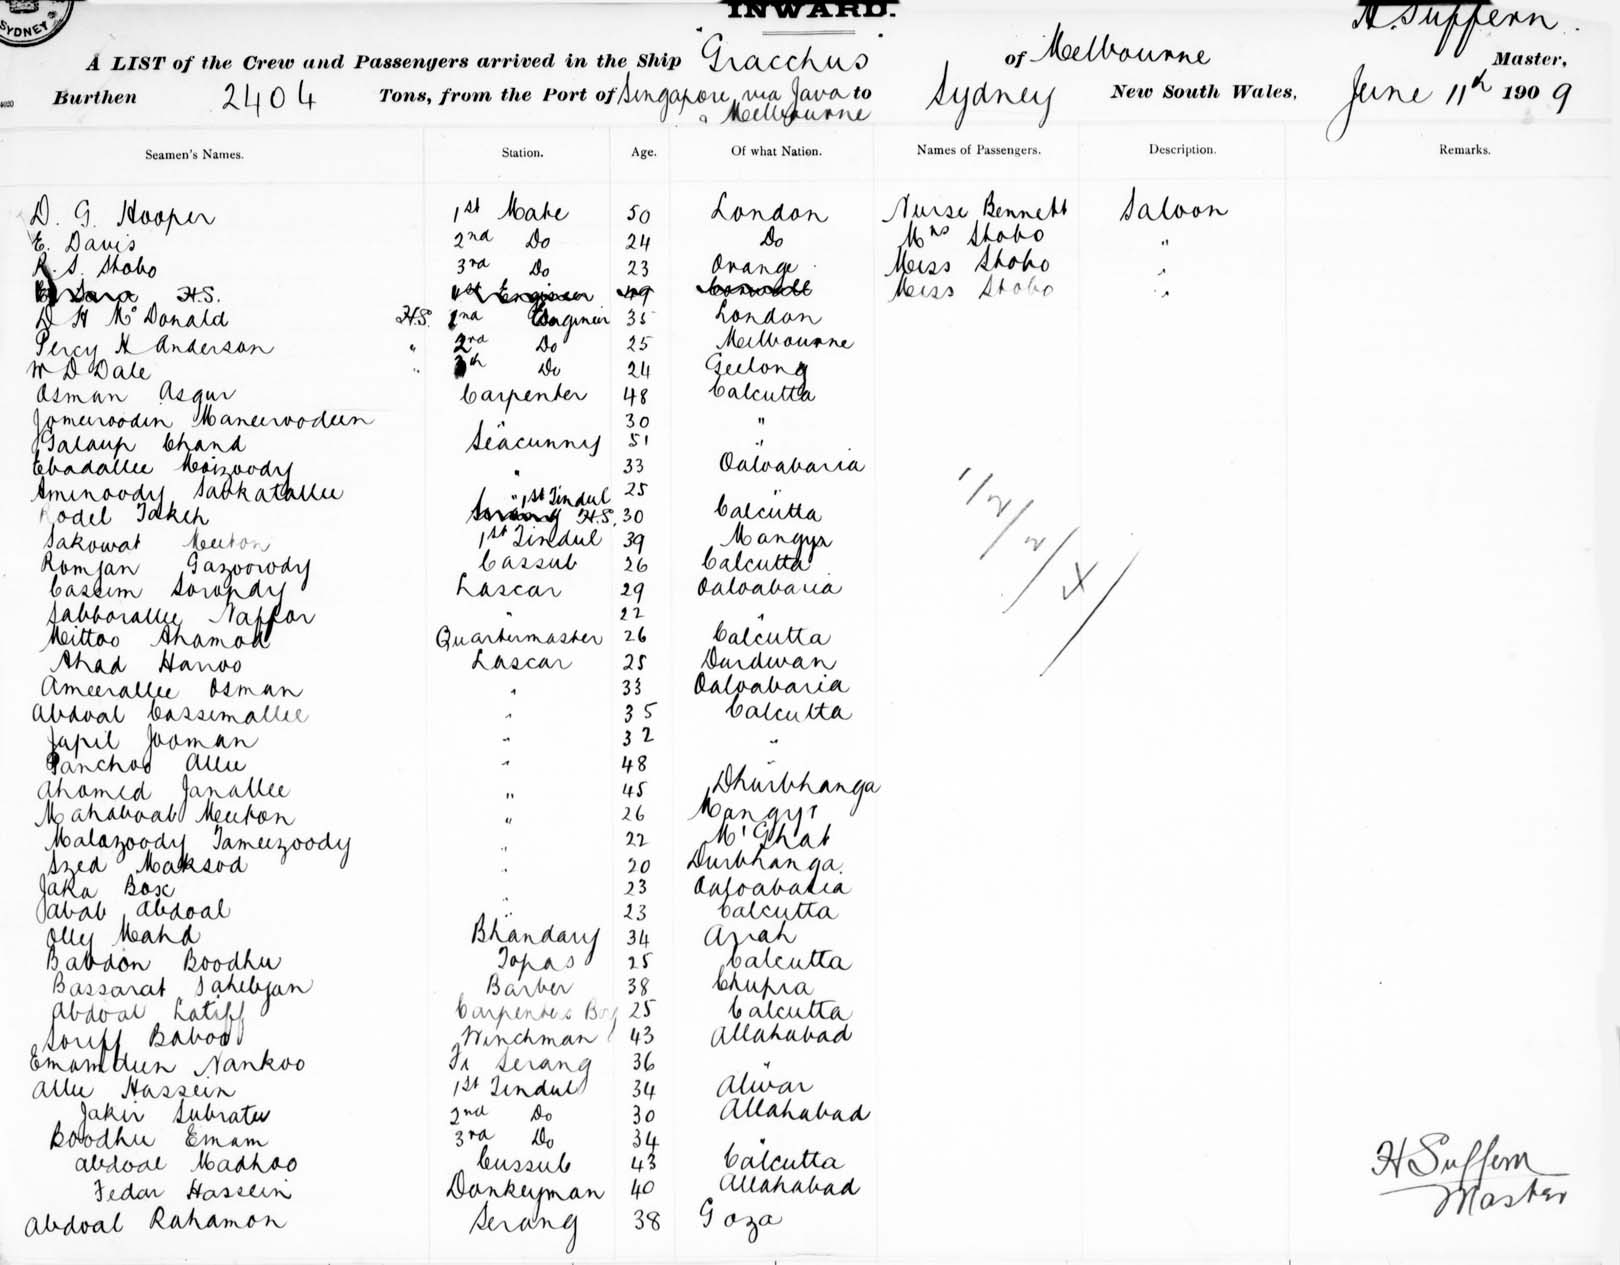 SYDNEY
INWARD.
H. Suffern.
A LIST of the Crew and Passengers arrived in the Ship "Gracchus" of Melbourne Master,
Burthen 2404 Tons, from the Port of Singapore via Java to Sydney New South Wales, June 11th 1909
& Melbourne
Seamen's Names. Station. Age. Of what Nation. Names of Passengers. Description. Remarks.
D. G. Hooper 1st Mate 50 London Nurse Bennett Saloon
E. Davis 2nd Do 24 Do Mrs Shobo "
R. S. Shobo 3rd Do 23 Orange Miss Shobo "
H.S. 1st Engineer 49 Miss Shobo "
D H McDonald H.S. Engineer 35 London
Percy H Anderson " 2nd Do 25 Melbourne
W D Dale " Do 24 Geelong
Osman Asgur Carpenter 48 Calcutta
Jomeeroodin Maneeroodeen 30 "
Galaup Chand Seacunny 51 "
Ebadallee Moizoody " 33 Oaloabaria
Aminoody Saukatallee " 25 "
Rodel Takeh 1st Tindul H.S. 30 Calcutta
Sakowat Meeton 1st Tindul 39 Mangyr
Romjan Gazoorody Cassub 26 Calcutta
Cassim Sorondy Lascar 29 Oaloabaria
Sabborallee Naffor " 22 "
Mittoo Ahamod Quartermaster 26 Calcutta
Ahad Hanoo Lascar 25 Durdwan
Ameerallee Osman " 33 Oaloabaria
Abdoal Cassimallee " 35 Calcutta
Japil Jooman " 32 "
Panchoo Allee 48 "
Ahomed Janallee " 45 Dhurbhanga
Mahaboab Meeton " 26 Mangyr
Malazoody Tameezoody " 22 M'Ghat
Szed Maksod " 20 Durbhanga.
Jaka Box 23 Oaloabaria
Jabab Abdoal " 23 Calcutta
Olly Mahd Bhandary 34 Arrah
Babdon Boodhu Topas 25 Calcutta
Bassarat Sahebjan Barber 38 Chupra
Abdoal Latiff Carpenters Boy 25 Calcutta
Soriff Baboo Winchman 43 Allahabad
Emamdeen Nankoo Fr Serang 36 "
Allee Hassein 1st Tindul 34 Aliwar
Jakir Subratee 2nd Do 30 Allahabad
Boodhu Emam 3rd Do 34 "
Abdoal Madhoo Cussub 43 Calcutta
Fedar Hassein Donkeyman 40 Allahabad
Abdoal Rahamon Serang 38 Goza
H Suffern
Master